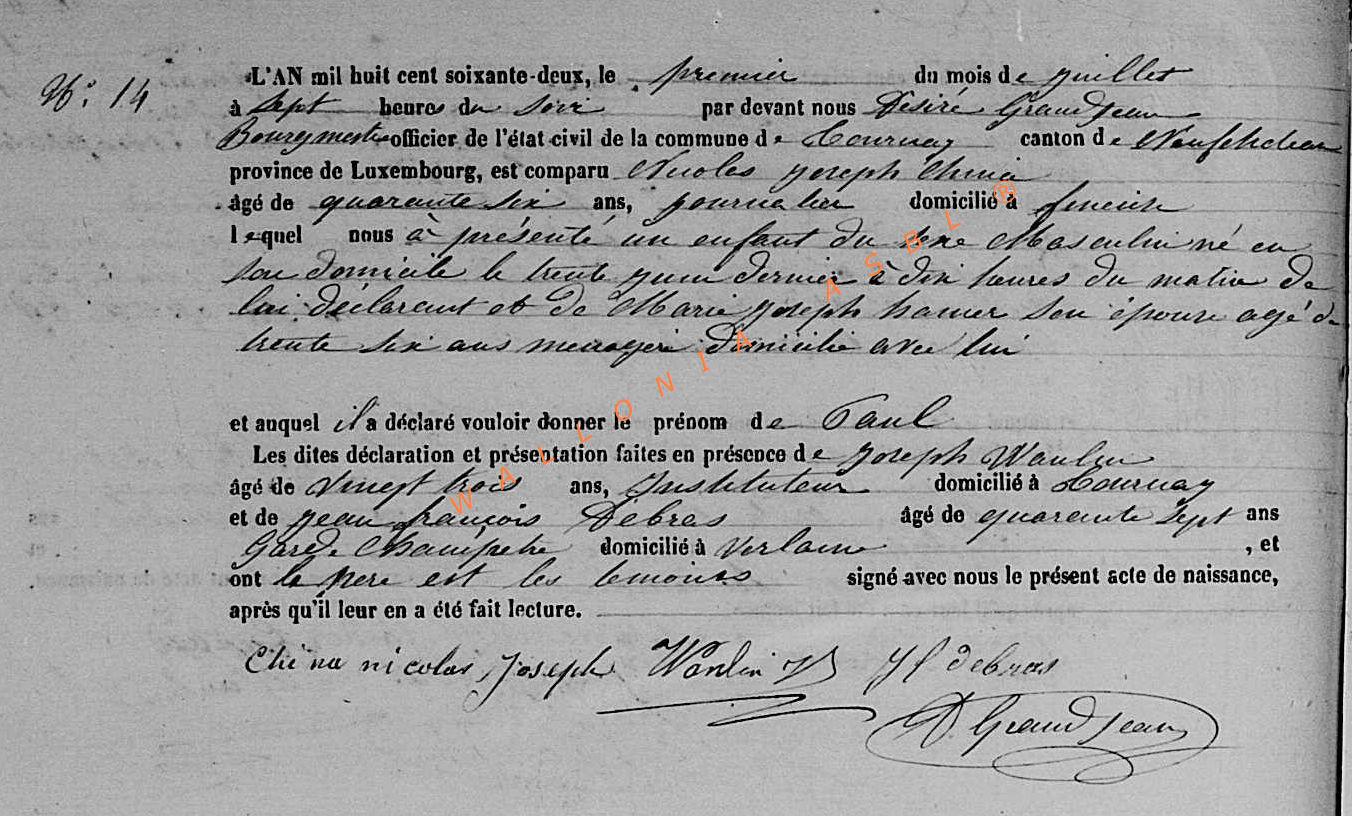 N°. 14
L'AN mil huit cent soixante-deux, le premier du mois de juillet
à sept heures du soir par devant nous Désiré Grandjean
Bourgmestre officier de l'état civil de la commune de Tournay canton de Neufchateau
province de Luxembourg, est comparu Nicolas joseph China
âgé de quarante six ans, journalier domicilié à
lequel nous à présenté un enfant du sexe Masculin né en
son domicile le trente juin dernier à dix heures du matin de
lui déclarant et de Marie joseph hamer son épouse agé de
trente six ans menagere domicilié avec lui
et auquel il a déclaré vouloir donner le prénom de Paul
Les dites déclaration et présentation faites en présence de joseph Wanlin
âgé de vingt trois ans, Instituteur domicilié à Tournay
et de jean françois Débras âgé de quarante sept ans
Garde Champetre domicilié à Verlaine , et
ont le pere est les temoins signé avec nous le présent acte de naissance,
après qu'il leur en a été fait lecture.
China nicolas joseph Wanlin J J f debras
D. Grandjean
WALLONIA ASBL ®